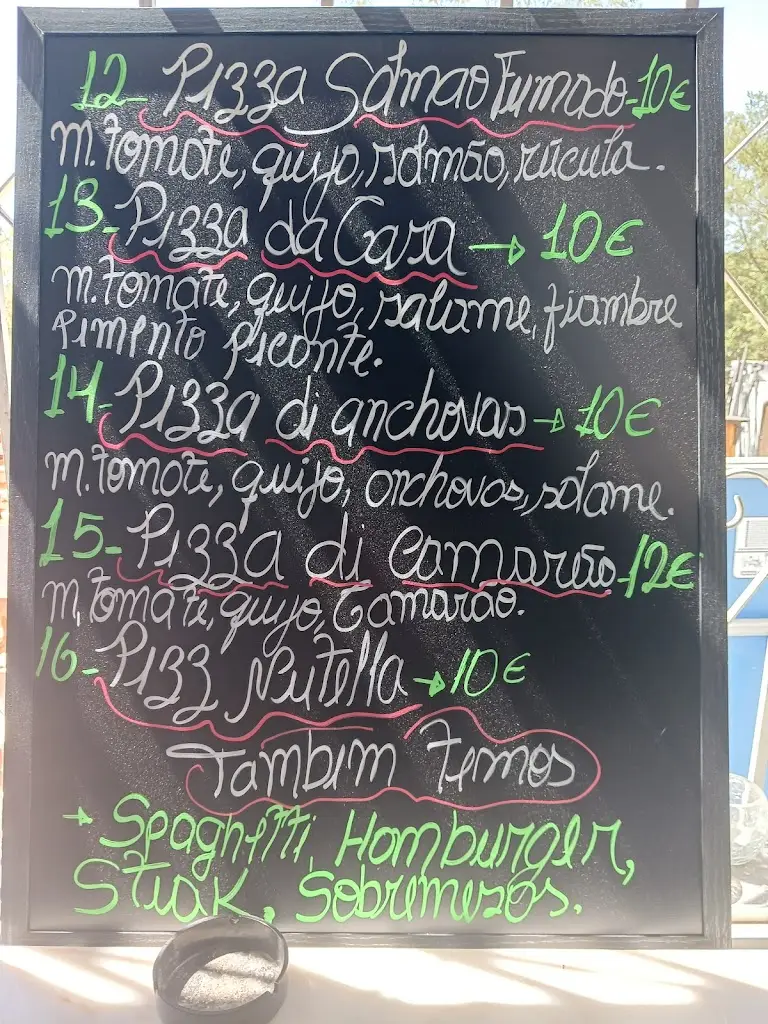 12- Pizza Salmao Fumado-10€
m. tomate, quijo, salmão, rúcula.
13- Pizza da Casa → 10€
m. tomate, quijo, salame, fiambre
Pimento Picante.
14- Pizza di anchovas → 10€
m. tomate, quijo, anchovas, salame.
15- Pizza di Camarão-12€
m, tomate, quijo, Camarão.
16- Pizz Nutella → 10€
Tambim temos
→ Spaghetti, Hamburger,
Steak, Sobremesas.